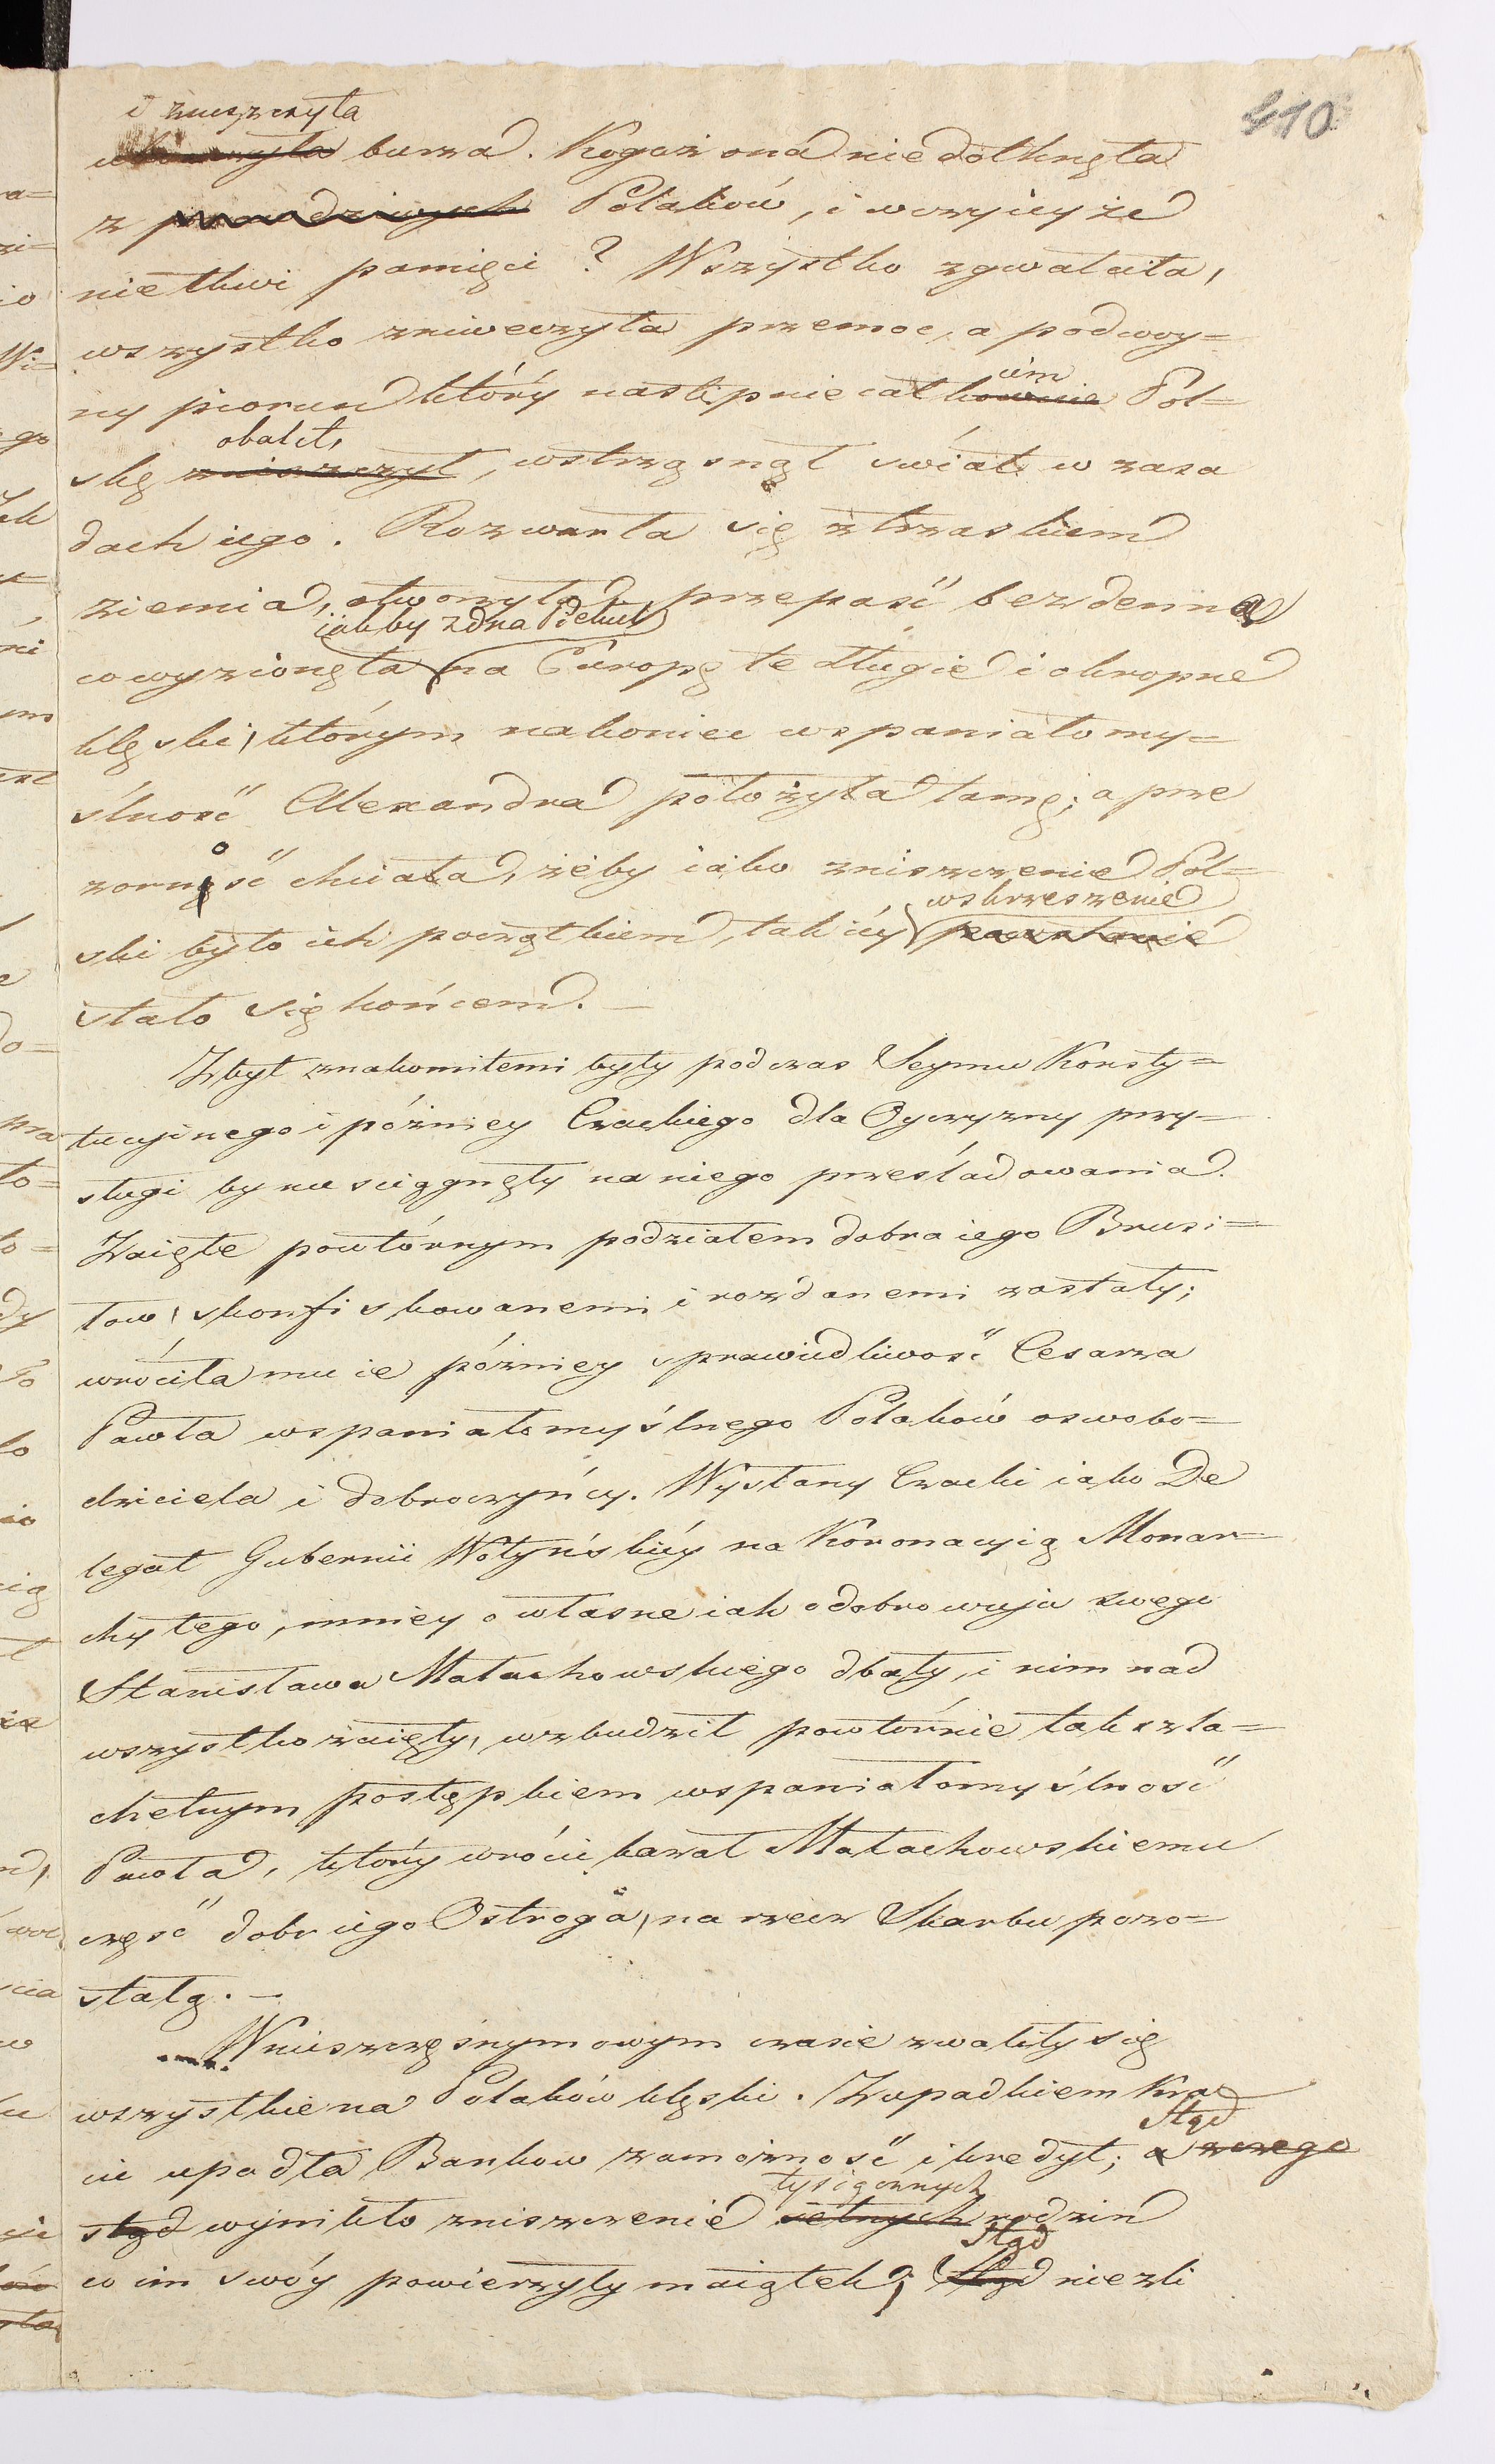 410
i zniszczyła
burza. Kogoż ona nie dotknęła
z prawdziwych Polaków, i w czyiey że
nie tkwi pamięci? Wszystko zgwałciła,
wszystko zniweczyła przemoc, a podwoy=
ny piorun który następnie całkowicie Pol=
cim
obalił,
skę zniszczył, wstrząsnął świat w zasa
dach iego. Rozwarła się z trzaskiem
ziemia, otworzyła przepaść bezdenną
iakby z dna Piekieł
co wyzionęła na Europę te długie i okropne
klęski, którym nakoniec wspaniałomy=
ślność Alexandra położyła tamę; a prze
zorność chciała, żeby iako zniszczenie Pol=
wskrzeszenie
ski było ich początkiem, tak iéy powstanie
stało się końcem. —
Zbyt znakomitemi były podczas Seymu Konsty=
tucyinego i późniey Czackiego dla Oyczyzny przy=
sługi by nie sciągnęły na niego prześladowania.
Zaięte powtórnym podziałem dobra iego Brusi=
low, skonfiskowanemi i rozdanemi zostały;
wróciła mu ie późniey sprawiedliwość Cesarza
Pawła wspaniałomyślnego Polaków oswobo=
dziciela i dobroczyńcy. Wysłany Czacki iako De
legat Gubernii Wołyńskiéy na Koronacyią Monar=
chy tego, mniey o własne iak o dobro wuja swego
Stanisława Małachowskiego dbały, i nim nad
wszystko zaięty, wzbudził powtórnie tak szla=
chetnym postępkiem wspaniałomyślność
Pawła, który wrócić kazał Małachowskiemu
część dobr iego Ostroga, na rzecz Skarbu pozo=
stałą. —
W nieszczęsnym owym czasie zwaliły się
wszystkie na Polaków klęski. Z upadkiem Kra
Stąd
iu upadła Bankow zamożność i kredyt; a z czego
tysiącznych
stąd wynikło zniszczenie setnych rodzin
Stąd
co im swóy powierzyły maiątek; Stąd niezli